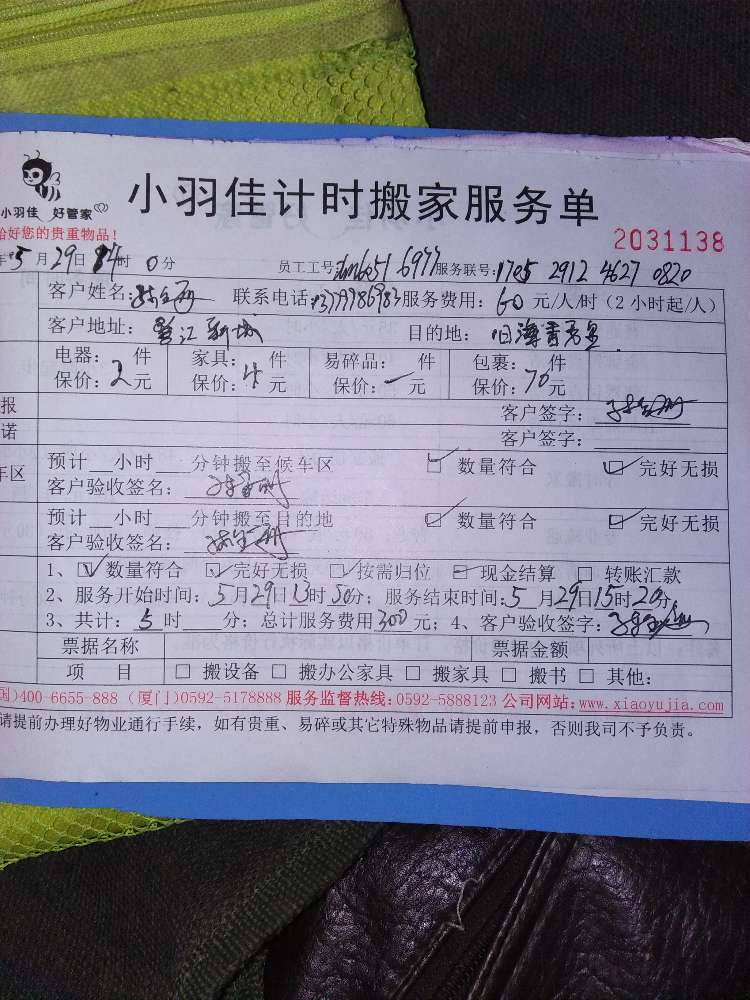 小羽佳计时搬家服务单
小羽佳 好管家
您的贵重物品!
2031138
5月29日 时0分 员工工号 6977 服务联号:1705 2912 4627 0820
客户姓名: 联系电话: 服务费用:60元/人/时(2小时起/人)
客户地址: 新城 目的地:
电器: 件 家具: 件 易碎品: 件 包裹: 件
保价:2元 保价:4元 保价:一元 保价:70元
报 客户签字:
诺 客户签字:
车区 预计__小时___分钟搬至候车区 ☑ 数量符合 ☑ 完好无损
客户验收签名:
预计__小时___分钟搬至目的地 ☑ 数量符合 ☑ 完好无损
客户验收签名:
1、☑ 数量符合 ☑ 完好无损 ☑ 按需归位 ☑ 现金结算 □ 转账汇款
2、服务开始时间:5月29日13时50分;服务结束时间:5月29日15时20分,
3、共计:5时___分;总计服务费用300元;4、客户验收签字:
票据名称 票据金额
项 目 □ 搬设备 □ 搬办公家具 □ 搬家具 □ 搬书 □ 其他:
国)400-6655-888 (厦门)0592-5178888 服务监督热线:0592-5888123 公司网站:www.xiaoyujia.com
请提前办理好物业通行手续,如有贵重、易碎或其它特殊物品请提前申报,否则我司不予负责。